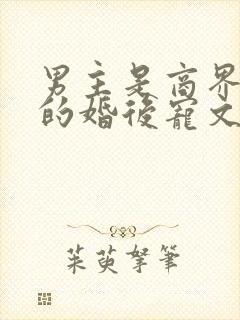 男主是商界
的婚後寵文
茱萸拏筆